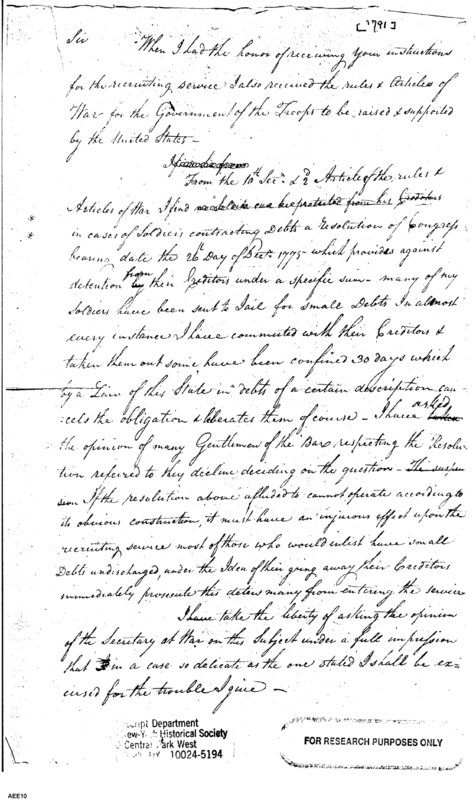 [1791]
Sir When I had the honor of receiving Your instructions
for the recruiting service I also received the rules & Articles of
War for the Government of the Troops to be raised & supported
by the United States—
From the 10th Sec. & 2d Article of the rules &
Articles of War I find no Soldier can be protected from his Creditors
in cases of Soldiers contracting Debts a Resolution of Congress
bearing date the 26th Day of Decr. 1775 which provides against
detention from by their Creditors under a specific sum— many of my
Soldiers have been sent to Jail for small Debts In almost
every instance I have commuted with their Creditors &
taken them out some have been confined 30 days which
by a Law of this State in debts of a certain description can-
cels the obligation & liberates them of course— I have asked
the opinion of many Gentlemen of the Bar, respecting the Resolu-
tion referred to they decline deciding on the question— The suspen
sion If the resolution above alluded to cannot operate according to
its obvious construction, it must have an injurious effect upon the
recruiting service most of those who would enlist have small
Debts undischarged, under the Idea of their going away their Creditors
immediately prosecute this deters many from entering the service
I have take the liberty of asking the opinion
of the Secretary at War on this Subject under a full impression
that in a case so delicate as the one stated I shall be ex-
cused for the trouble I give—
Department
Historical Society
Central Park West
10024-5194
FOR RESEARCH PURPOSES ONLY
AEE10